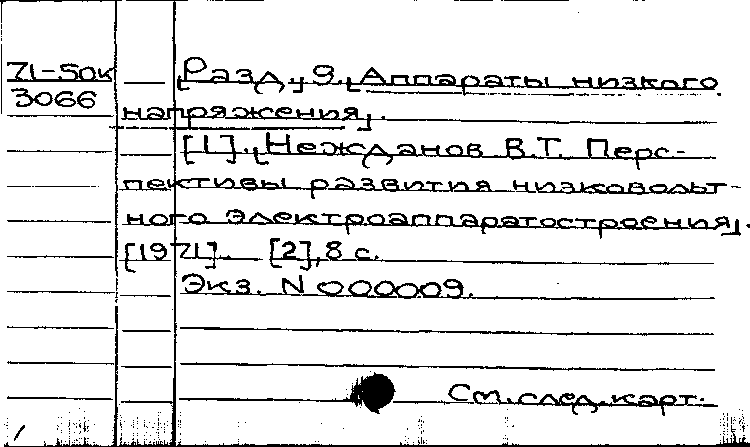 71-50к
3066
[Разд.] 9. [Аппараты низкого
напряжения].
[1]. [Нежданов В.Т. Перс-
пективы развития низковольт-
ного электроаппаратостроения].
[1971]. [2],8 с.
Экз. N 000009.
См.след.карт.